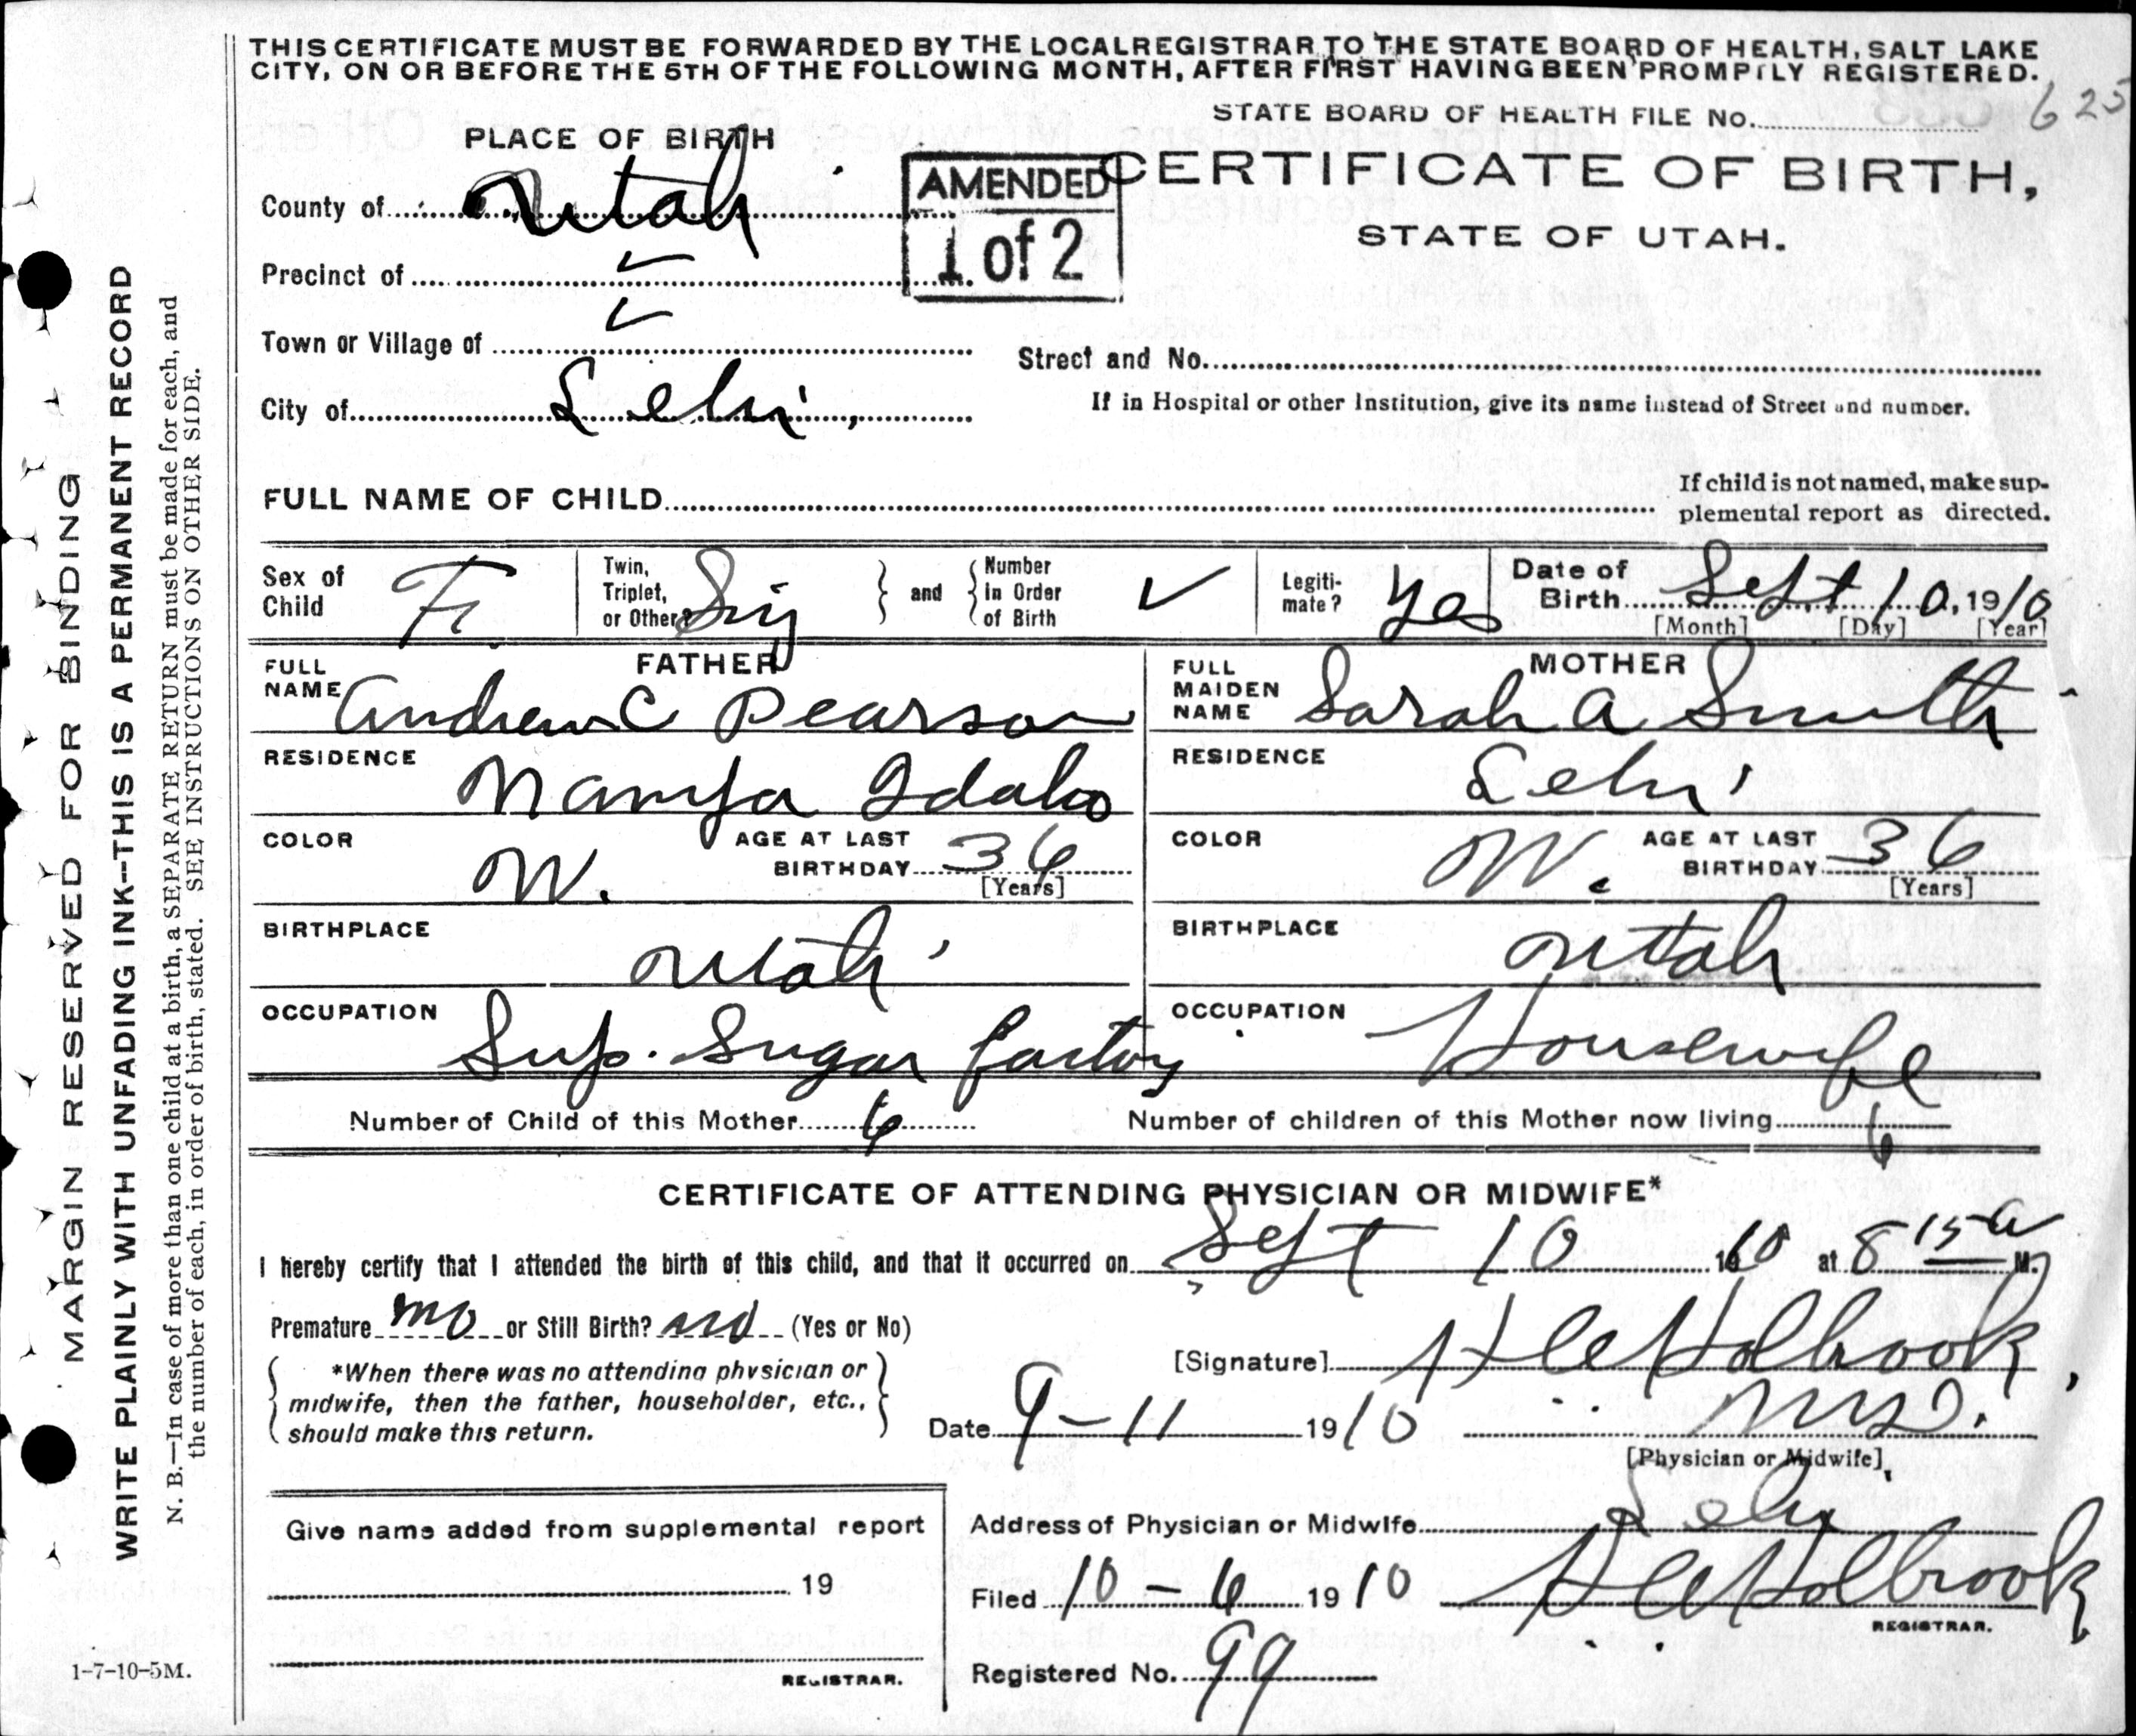 THIS CERTIFICATE MUST BE FORWARDED BY THE LOCAL REGISTRAR TO THE STATE BOARD OF HEALTH, SALT LAKE
CITY, ON OR BEFORE THE 5TH OF THE FOLLOWING MONTH, AFTER FIRST HAVING BEEN PROMPTLY REGISTERED.
STATE BOARD OF HEALTH FILE No. 625
PLACE OF BIRTH
CERTIFICATE OF BIRTH,
STATE OF UTAH.
AMENDED
1 of 2
County of Utah
Precinct of ✓
Town or Village of ✓
Street and No.
City of Lehi,
If in Hospital or other Institution, give its name instead of Street and number.
FULL NAME OF CHILD
If child is not named, make sup-
plemental report as directed.
Sex of Child F.
Twin, Triplet, or Other? Sig
and Number In Order of Birth ✓
Legiti-mate? Yes
Date of Birth Sept 10, 1910
[Month] [Day] [Year]
FATHER
FULL NAME Andrew C Pearson
MOTHER
FULL MAIDEN NAME Sarah A Smith
RESIDENCE Nampa Idaho
RESIDENCE Lehi
COLOR W. AGE AT LAST BIRTHDAY 36 [Years]
COLOR W. AGE AT LAST BIRTHDAY 36 [Years]
BIRTHPLACE Utah
BIRTHPLACE Utah
OCCUPATION Sup. Sugar factory
OCCUPATION Housewife
Number of Child of this Mother 6
Number of children of this Mother now living 6
CERTIFICATE OF ATTENDING PHYSICIAN OR MIDWIFE*
I hereby certify that I attended the birth of this child, and that it occurred on Sept 10 1910 at 8 15 a M.
Premature no or Still Birth? no (Yes or No)
*When there was no attending physician or
midwife, then the father, householder, etc.,
should make this return.
[Signature] Holbrook,
Date 9-11 1910 M.D.
[Physician or Midwife]
Give name added from supplemental report
19
REGISTRAR.
Address of Physician or Midwife Lehi
Filed 10-6 1910 Holbrook
REGISTRAR.
Registered No. 99
MARGIN RESERVED FOR BINDING
WRITE PLAINLY WITH UNFADING INK--THIS IS A PERMANENT RECORD
N. B.—In case of more than one child at a birth, a SEPARATE RETURN must be made for each, and
the number of each, in order of birth, stated. SEE INSTRUCTIONS ON OTHER SIDE.
1-7-10-5M.